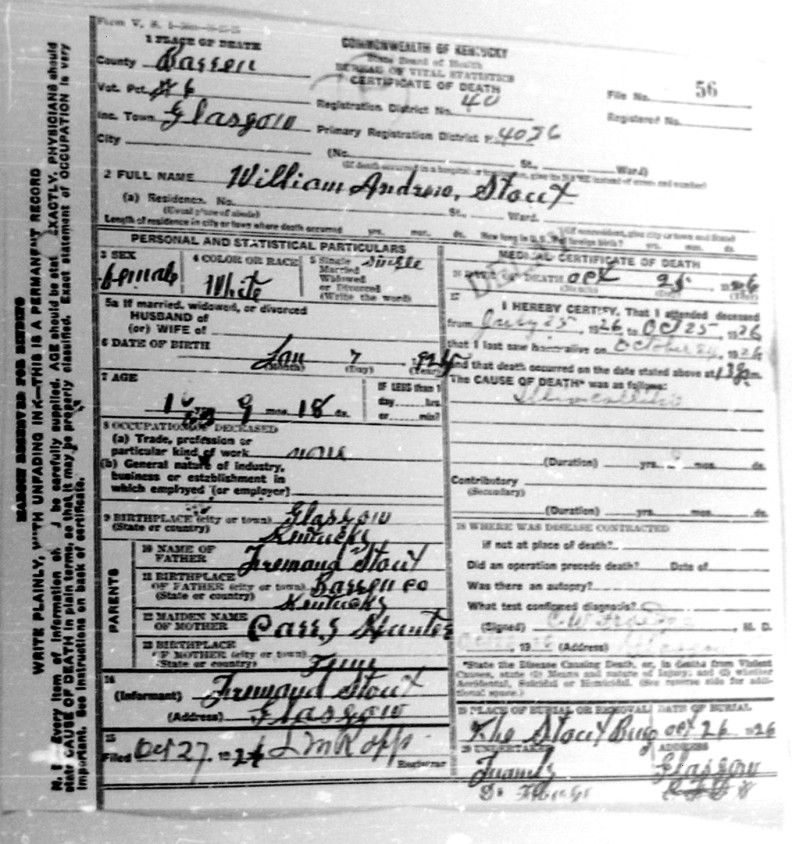 Form V. S.
1 PLACE OF DEATH
County Barren
Vot. Pct. # 6
Inc. Town Glasgow
City
COMMONWEALTH OF KENTUCKY
State Board of Health
BUREAU OF VITAL STATISTICS
CERTIFICATE OF DEATH
Registration District No. 40
Primary Registration District No. 4056
File No. 56
Registered No.
(No. St., Ward)
(If death occurred in a hospital or institution, give its NAME instead of street and number)
2 FULL NAME William Andrew, Stout
(a) Residence. No. St., Ward.
(Usual place of abode) (If nonresident, give city or town and State)
Length of residence in city or town where death occurred yrs. mos. ds. How long in U. S., if of foreign birth? yrs. mos. ds.
PERSONAL AND STATISTICAL PARTICULARS
3 SEX female
4 COLOR OR RACE White
5 Single Married Widowed or Divorced (Write the word) single
5a If married, widowed, or divorced
HUSBAND of
(or) WIFE of
6 DATE OF BIRTH Jan 7
(Month) (Day) (Year)
7 AGE
1 yrs. 9 mos. 18 ds.
IF LESS than 1 day, hrs. or min?
8 OCCUPATION OF DECEASED
(a) Trade, profession or
particular kind of work none
(b) General nature of industry,
business or establishment in
which employed (or employer)
9 BIRTHPLACE (city or town) Glasgow
(State or country) Kentucky
PARENTS
10 NAME OF FATHER Stout
11 BIRTHPLACE OF FATHER (city or town) Barren co
(State or country) Kentucky
12 MAIDEN NAME OF MOTHER
13 BIRTHPLACE OF MOTHER (city or town)
(State or country) Tenn
14
(Informant) Stout
(Address) Glasgow
15
Filed Oct 27, 1926
Registrar
MEDICAL CERTIFICATE OF DEATH
16 DATE OF DEATH Oct 25 1926
(Month) (Day) (Year)
17
I HEREBY CERTIFY, That I attended deceased
from July 25, 1926 to Oct 25, 1926
that I last saw h alive on October 24, 1926
and that death occurred on the date stated above at m.
The CAUSE OF DEATH* was as follows:
(Duration) yrs. mos. ds.
Contributory
(Secondary)
(Duration) yrs. mos. ds.
18 WHERE WAS DISEASE CONTRACTED
if not at place of death?
Did an operation precede death? Date of
Was there an autopsy?
What test confirmed diagnosis?
(Signed) C W , M. D.
, 19 (Address) Glasgow
*State the Disease Causing Death, or, in deaths from Violent
Causes, state (1) Means and nature of Injury; and (2) whether
Accidental, Suicidal or Homicidal. (See reverse side for addi-
tional space.)
19 PLACE OF BURIAL OR REMOVAL DATE OF BURIAL
The Stout Bury Oct 26 1926
20 UNDERTAKER ADDRESS
Family Glasgow
MARGIN RESERVED FOR BINDING
WRITE PLAINLY, WITH UNFADING INK—THIS IS A PERMANENT RECORD
N. B. Every item of information should be carefully supplied. AGE should be stated EXACTLY. PHYSICIANS should
state CAUSE OF DEATH in plain terms, so that it may be properly classified. Exact statement of OCCUPATION is very
important. See instructions on back of certificate.